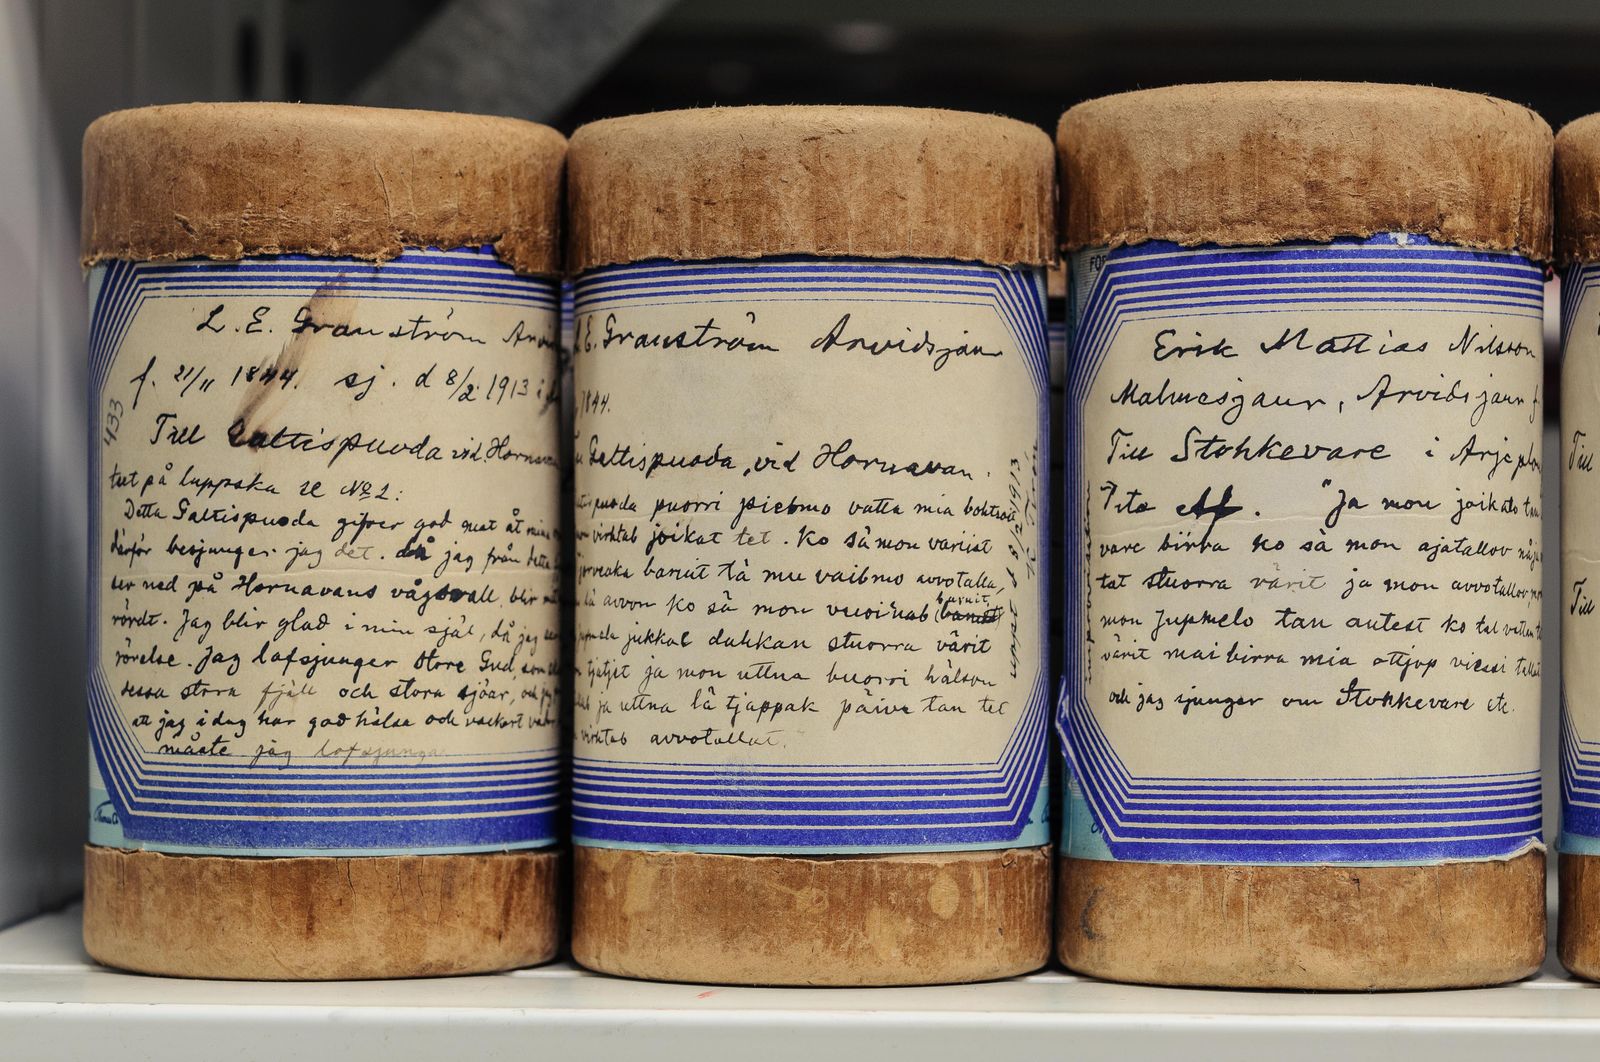 L. E. Granström
f. 21/11 1844. sj. d 8/2 1913 i
433
Till Galtispuoda vid. Hornavan
på lappska se No 2:
Detta Galtispuoda gifver god mat åt mina
därför besjunger jag det. då jag från detta
ser ned på Hornavans vågsvall, blir
rördt. Jag blir glad i min själ, då jag
rörelse. Jag lofsjunger store Gud, som
dessa stora fjäll och stora sjöar, och
att jag i dag har god hälsa och vackert
måste jag lofsjunga
E. Granström Arvidsjaur
1844.
Galtispuoda, vid Hornavan.
puoda puorri piebmo vatta mia
virktab joikat tet. Ko sä mon variist
baruit tä mu vaibmo avvotalla,
lä avvon ko sä mon vuoinab (baruit)
baruit,
jukkat dahkan stuorra värit
ja mon uttna buorri hälson
ja uttna lä tjappak päive tan tet
virktab avvotallat."
uppt d 8/2 1913
Erik Mattias Nilsson
Malmesjaur, Arvidsjaur f
Till Stohkevare i Arjeplog
"Ja mon joikato tan
vare birra ko sä mon ajatallov
tat stuorra värit ja mon avvotallov,
mon Jupmelo tan autest ko tal vattam
värit mai birra mia ottjop viessi
och jag sjunger om Stohkevare etc.
FÖR
Till
Till